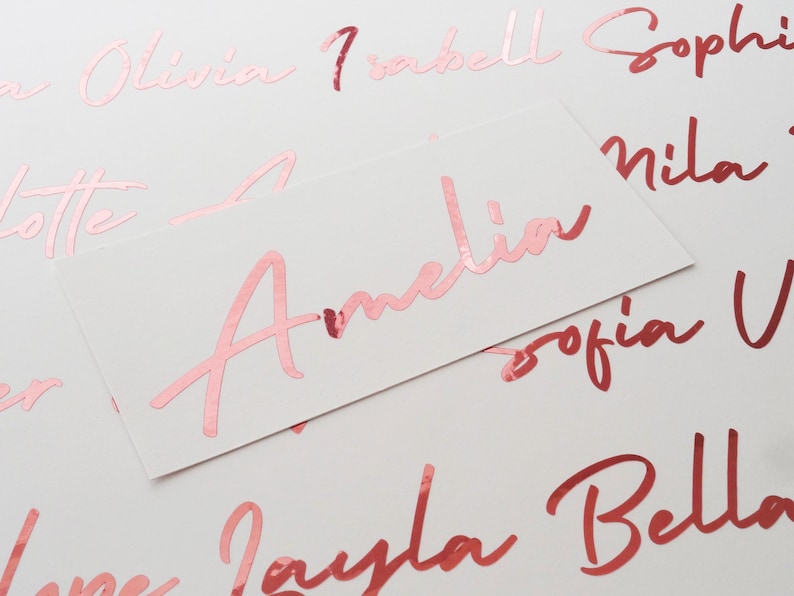 a Olivia Isabell Sophi
lotte A Mila
Amelia
er Sofia V
lope Layla Bella